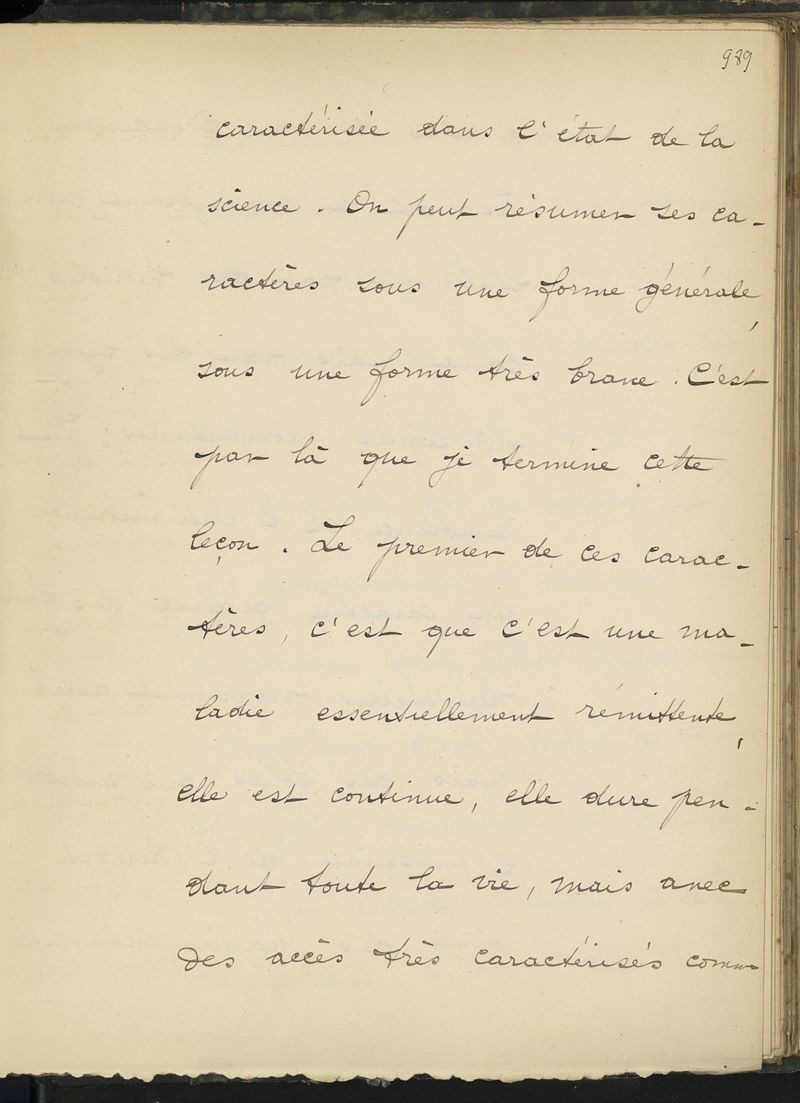 989
caractérisée dans l'état de la
science. On peut résumer ses ca-
ractères sous une forme générale,
sous une forme très brave. C'est
par là que je termine cette
leçon. Le premier de ces carac-
tères, c'est que c'est une ma-
ladie essentiellement rémittente,
elle est continue, elle dure pen-
dant toute la vie, mais avec
des accès très caractérisés comme